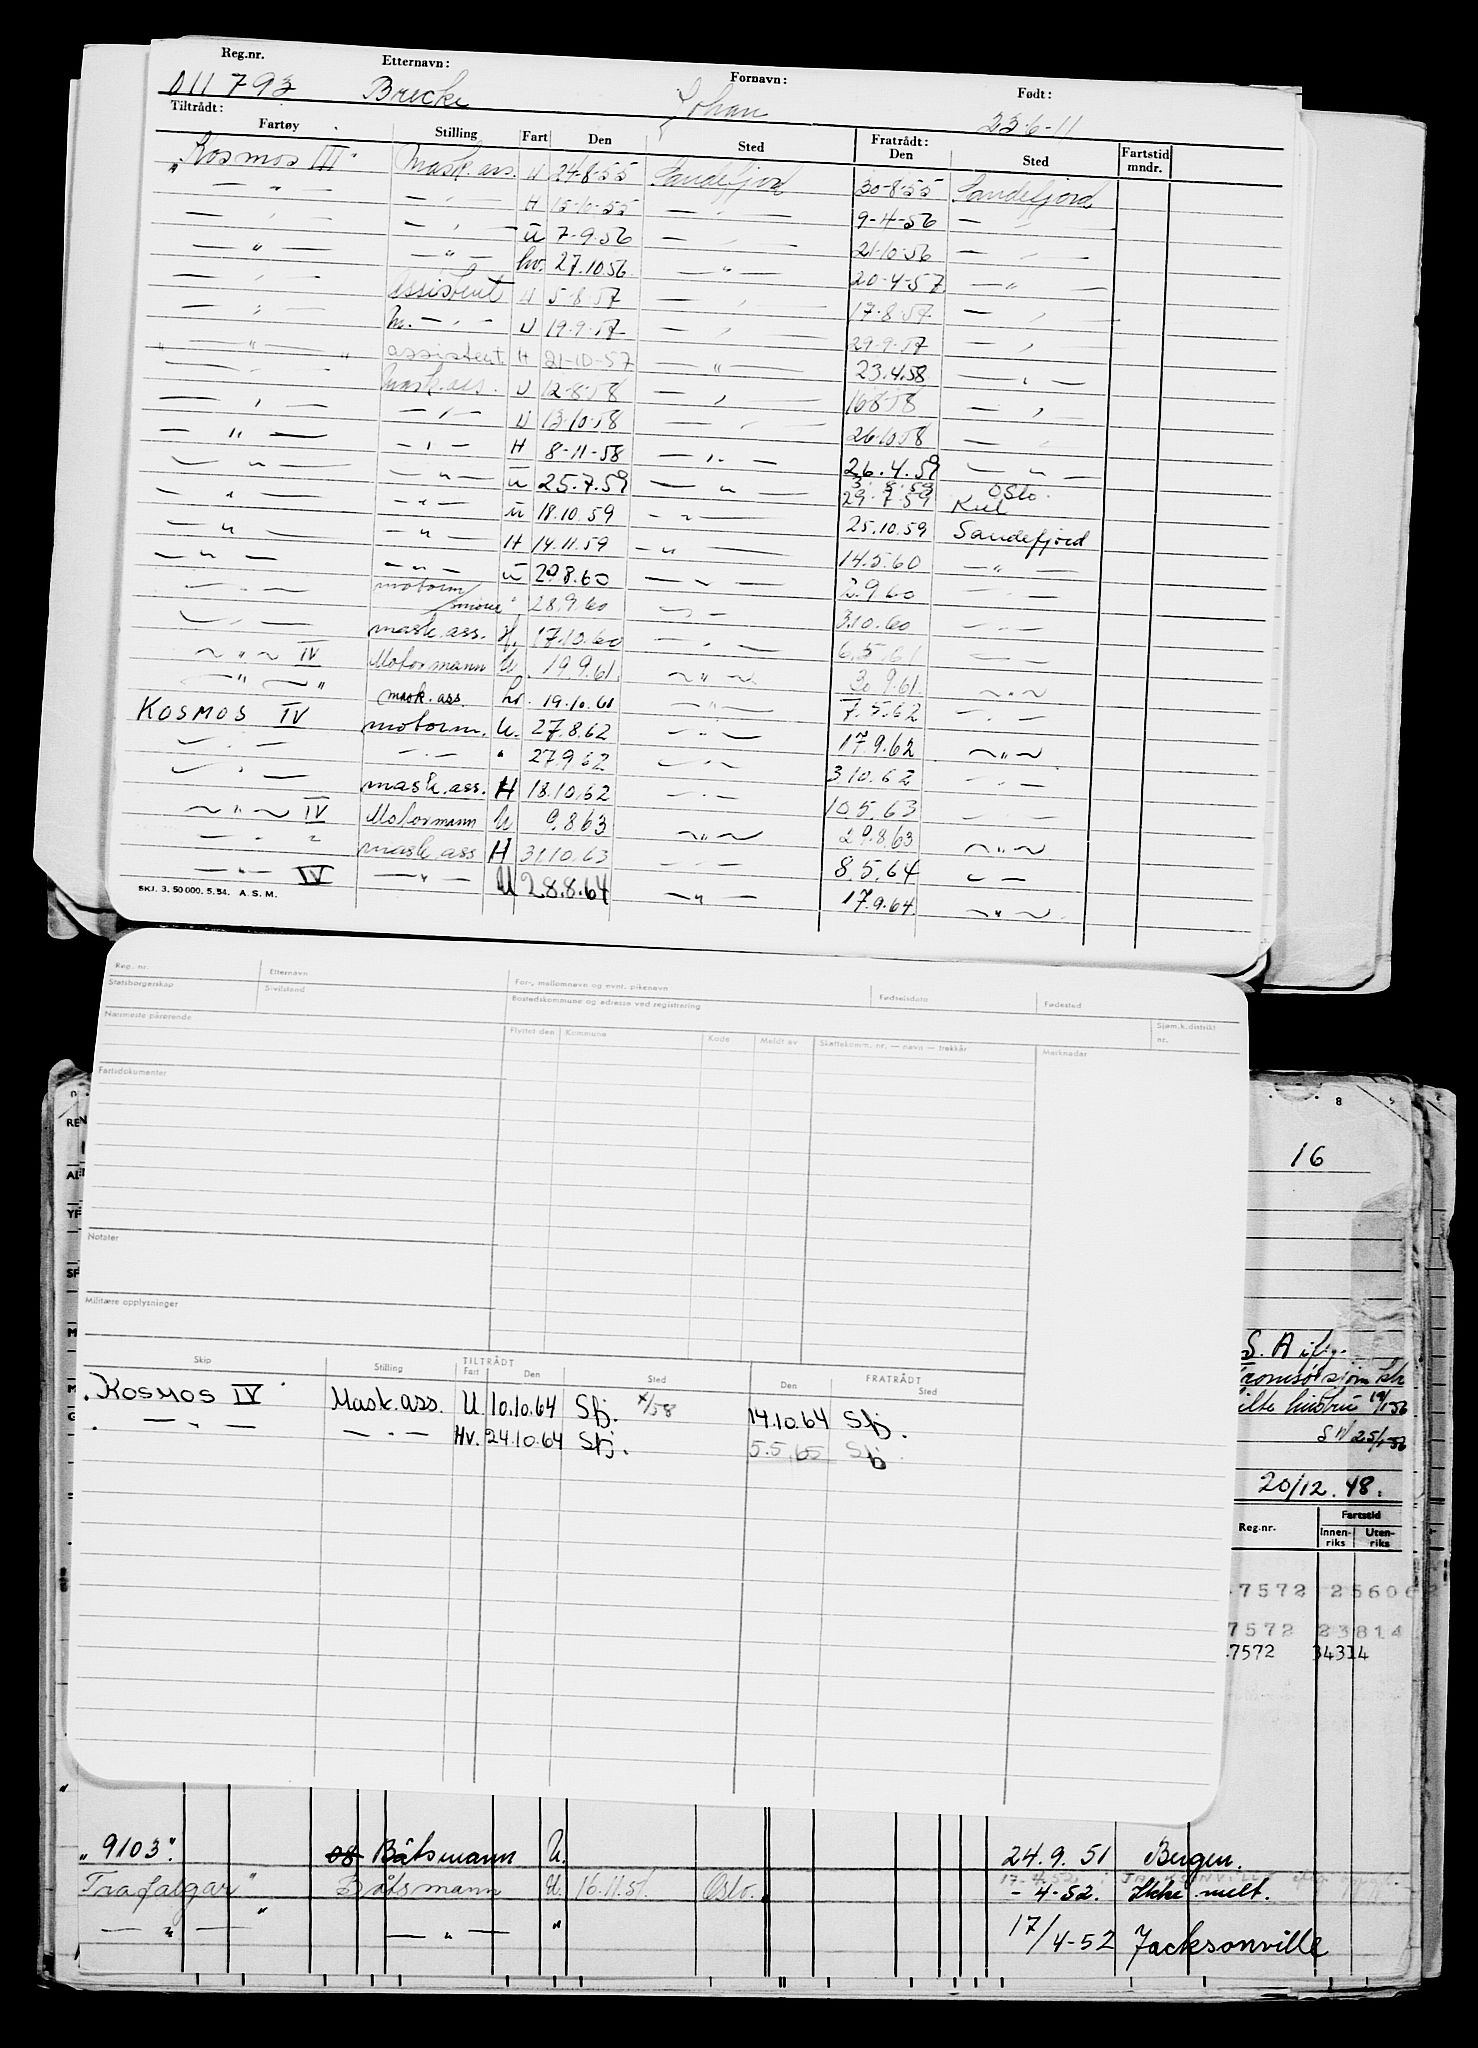 Reg.nr. Etternavn: Fornavn: Født:
D11793 Brecke Johan 23-6-11
Tiltrådt: Fratrådt:
Fartøy Stilling Fart Den Sted Den Sted Fartstid mndr.
"Kosmos III" Mask.ass. U 24-8-55 Sandefjord 30-8-55 Sandefjord
— " — — " — H 15-10-55 — " — 9-4-56 — " —
— " — — " — u 7-9-56 — " — 21-10-56 — " —
— " — — " — hv. 27.10.56 — " — 20-4-57 — " —
— " — Assistent U 5-8-57 — " — 17-8-57 — " —
— " — m. — " — U 19-9-57 — " — 29-9-57 — " —
" — " — " assistent H 21-10-57 — " — 23.4.58 — " —
— " — Mask.ass. U 12-8-58 — " — 16-8-58 — " —
— " — — " — U 13-10-58 — " — 26-10-58 — " —
— " — — " — H 8-11-58 — " — 26.4.59 — " —
— " — — " — u 25.7.59 — " — 29.7.59 Kiel Oslo.
— " — — " — u 18.10.59 — " — 25.10.59 Sandefjord
— " — — " — H 14.11.59 — " — 14.5.60 — " —
— " — — " — u 29.8.60 — " — 2.9.60 — " —
— " — motorm " 28.9.60 — " — 3.10.60 — " —
— " — mask.ass. H. 17.10.60 — " — 6.5.61 — " —
— " — IV Motormann U. 19.9.61. — " — 30.9.61. — " —
— " — " mask.ass. hv. 19.10.61 — " — 7.5.62 — " —
KOSMOS IV motorm. U. 27.8.62 — " — 17.9.62 — " —
— " — — " — " 27.9.62 — " — 3.10.62 — " —
— " — mask.ass. H 18.10.62 — " — 10.5.63 — " —
— " — IV Motormann U 9.8.63 — " — 29.8.63 — " —
— " — mask.ass H 31.10.63 — " — 8.5.64 — " —
— " — IV — " — U 28.8.64 — " — 17.9.64. — " —
SKJ. 3. 50 000. 5.54. A. S. M.
Reg. nr. Etternavn For-, mellomnavn og evnt. pikenavn Fødselsdato Fødested
Statsborgerskap Sivilstand Bostedskommune og adresse ved registrering
Nærmeste pårørende Flyttet den Kommune Kode Meldt av Skattekomm. nr. — navn — trekkår Merknader Sjøm.k.distrikt nr.
Fartsdokumenter
Notater
Militære opplysninger
TILTRÅDT FRATRÅDT
Skip Stilling Fart Den Sted Den Sted
"KOSMOS IV" Mask.ass. U 10.10.64 Sfj. 14.10.64 Sfj.
— " — — " — Hv. 24.10.64 Sfj. 5.5.65 Sfj.
8
16
S. A
20/12.48.
Reg.nr. Fartstid
Innenriks Utenriks
7572 25606
7572 23814
7572 34314
"9103". 08 Båtsmann U. 24.9.51 Bergen.
Trafalgar" Båtsmann U. 16.11.51. Oslo. -4-52. Ikke melt.
— " — " — " — " 17/4-52 Jacksonville